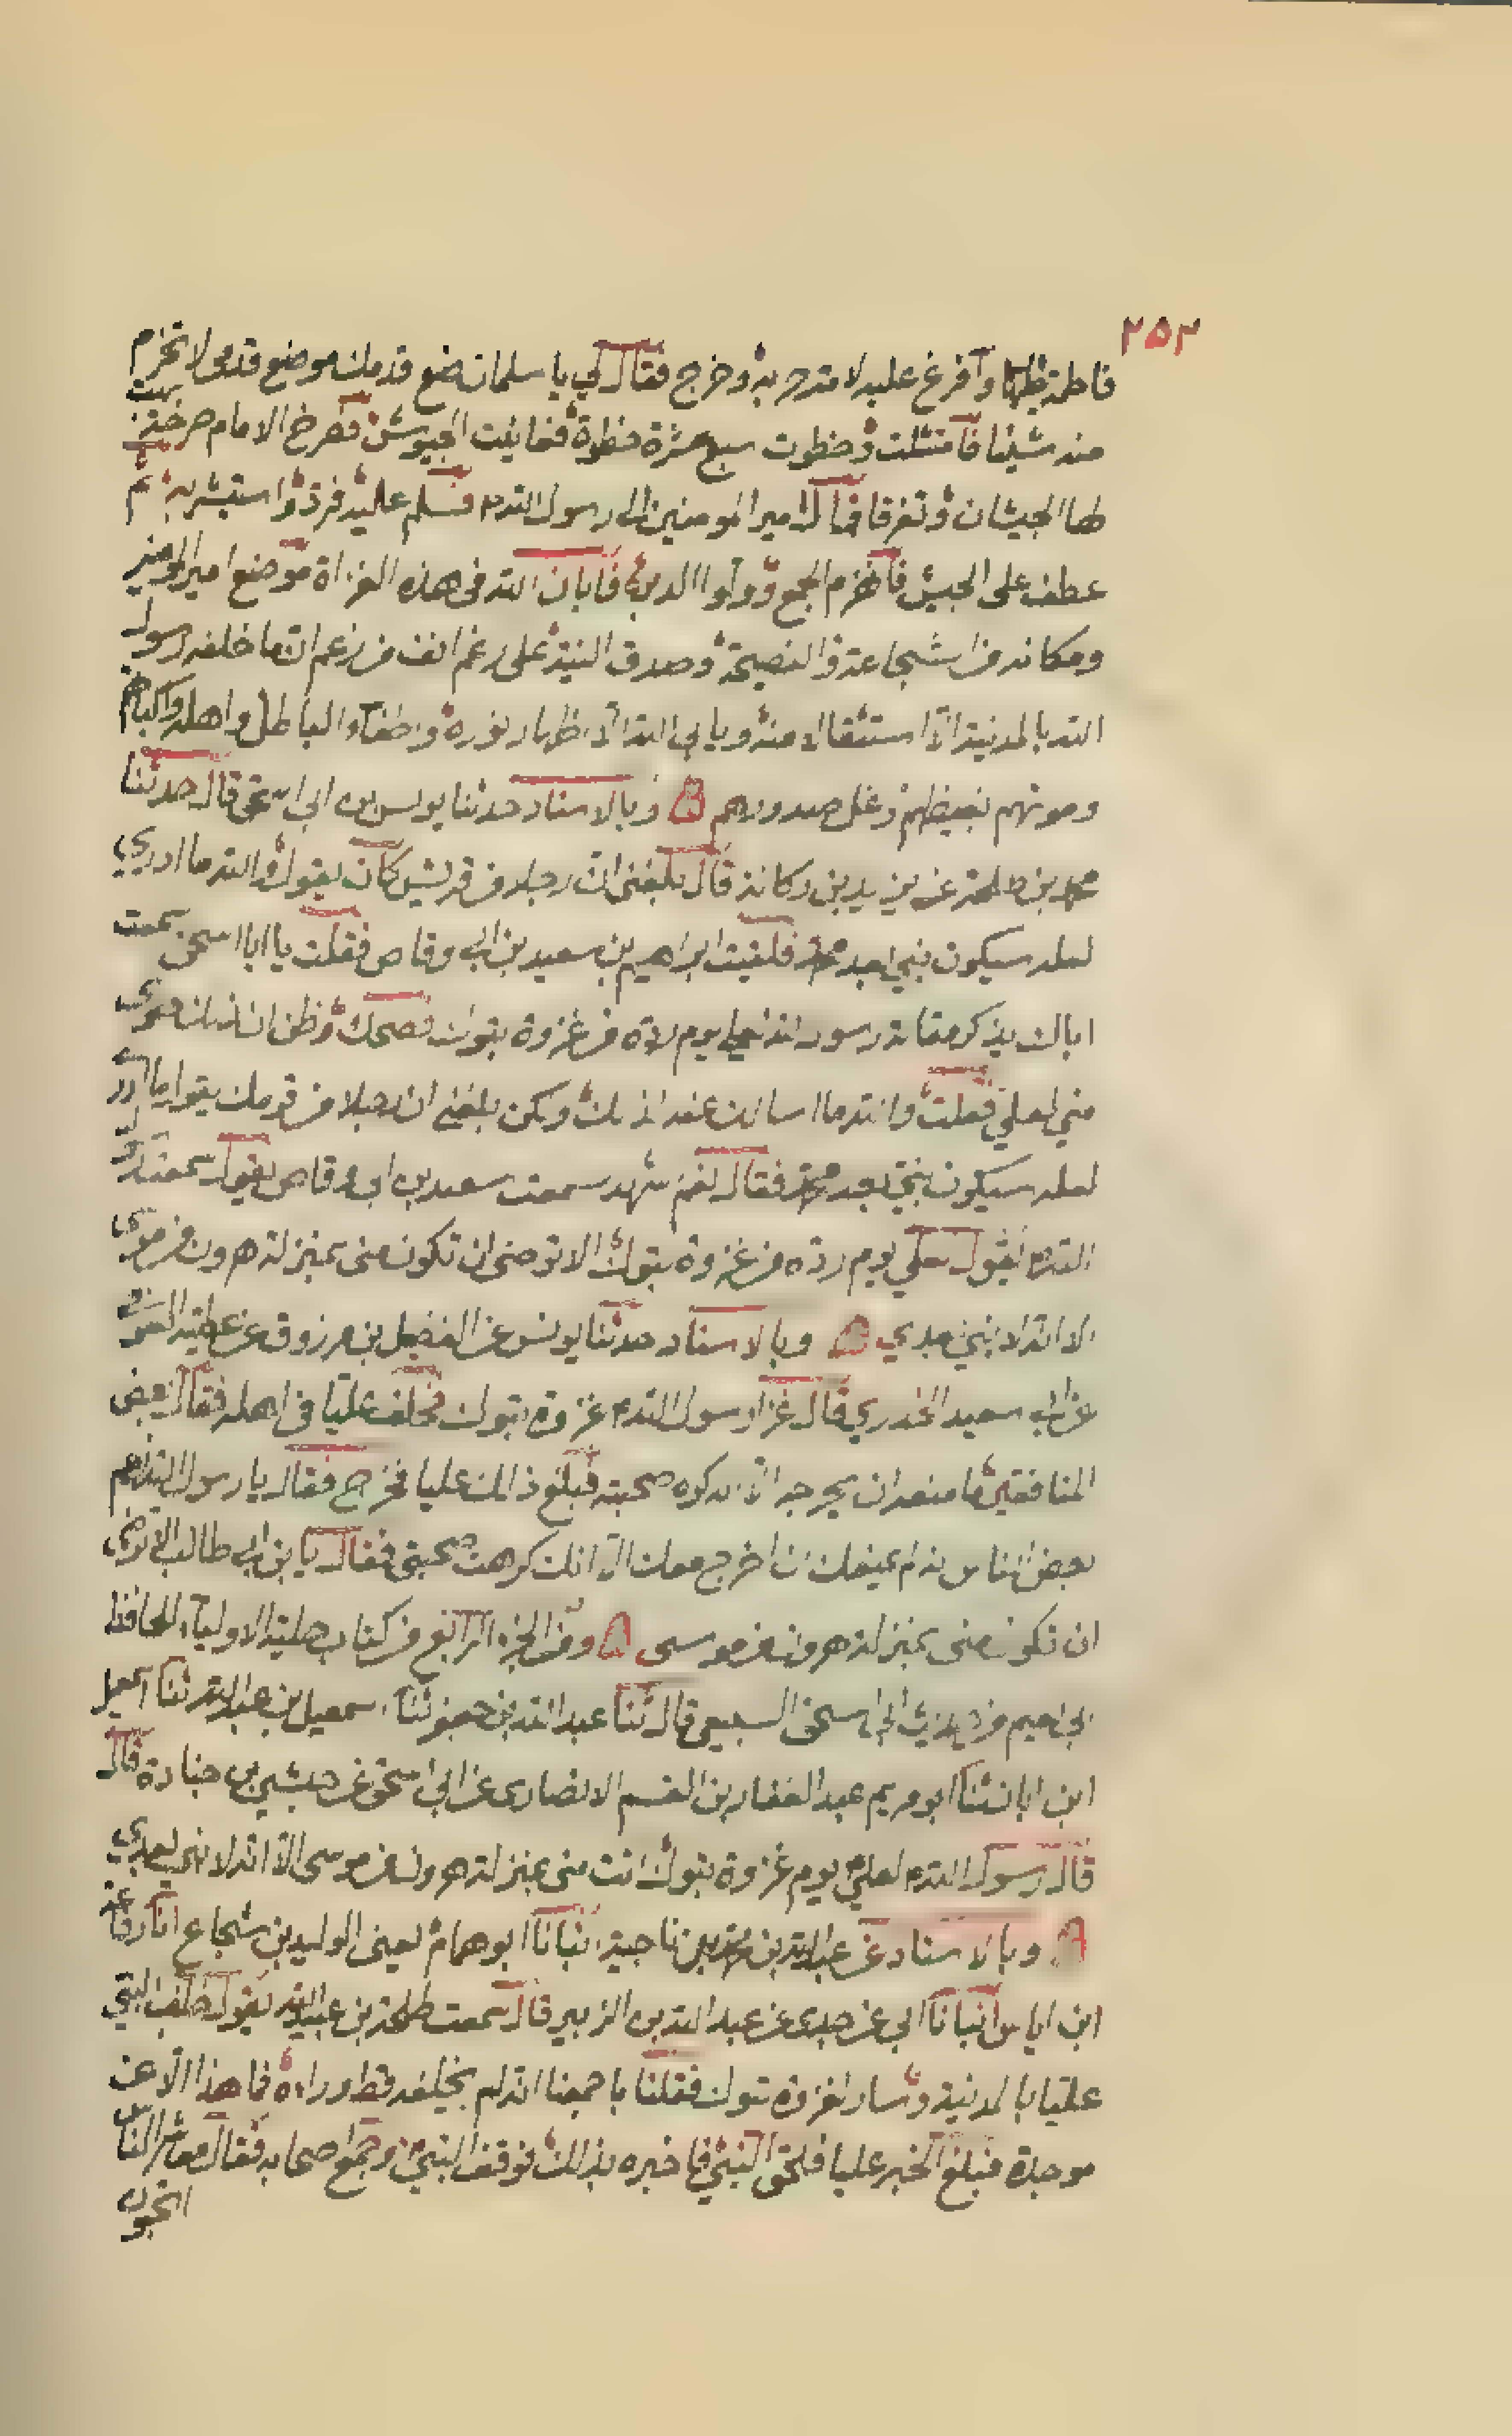 ٢٥٣
فاطمة ظهرها وأفرغ عليه لامة حربه وخرج فقال لي يا سلمان ضع قدمك موضع قدمي لا تخرم
منه شيئا فامتثلت وخطوت سبع عشرة خطوة فعاينت الجيوش فصرخ الامام صرخة بهت
لها الجيشان وتفرقا فمال امير المومنين الى رسول الله فسلم عليه فرد واستبشر به ثم
عطف على الجيش فانهزم الجمع وولوا الدبر فابان الله في هذه الغزاة موضع امير المومنين
ومكانه من الشجاعة والنصيحة وصدق النية على رغم انف من زعم انه ما خلفه رسول
الله بالمدينة الا استثقالا منه ويابى الله الا اظهار نوره واطفاء الباطل واهله واكباتهم
وموتهم بغيظهم وغل صدورهم ه وبالاسناد حدثنا يونس بن ابي اسحق قال حدثنا
محمد بن طلحة عن يزيد بن ركانة قال بلغني ان رجلا من قريش كان يقول والله ما ادري
لعله سيكون نبي بعد محمد فلقيت ابراهيم بن سعيد بن ابي وقاص فقلت يا ابا اسحق سمعت
اباك يذكر مقالة رسول الله لعلي يوم رده من غزوة تبوك فضحك وظن ان لذلك هوى
مني لعلي فقلت والله ما اسالك عنه لذلك ولكن بلغني ان رجلا من قومك يقول ما ادري
لعله سيكون نبي بعد محمد فقال نعم شهد سمعت سعيد بن ابي وقاص يقول سمعت رسول
الله يقول لعلي يوم رده من غزوة تبوك الا ترضى ان تكون مني بمنزلة هرون من موسى
الا انه لا نبي بعدي ه وبالاسناد حدثنا يونس عن الفضيل بن مرزوق عن عطية العوفي
عن ابي سعيد الخدري قال غزا رسول الله غزوة تبوك فخلف عليا في اهله فقال بعض
المنافقين ما منعه ان يخرجه الا انه كره صحبته فبلغ ذالك عليا فخرج فقال يا رسول الله زعم
بعض الناس انه لم يمنعك ان اخرج معك الا انك كرهت صحبتي فقال يا بن ابي طالب الا ترضى
ان تكون مني بمنزلة هرون من موسى ه ومن الجزء الرابع من كتاب حلية الاولياء للحافظ
ابي نعيم من حديث ابي اسحق السبيعي قال ثنا عبد الله بن جعفر ثنا اسمعيل بن عبد الله ثنا اسمعيل
ابن ابان ثنا ابو مريم عبد الغفار بن القسم الانصاري عن ابي اسحق عن حبشي بن جنادة قال
قال رسول الله لعلي يوم غزوة تبوك انت مني بمنزلة هرون من موسى الا انه لا نبي بعدي
ه وبالاسناد عن عبد الله بن محمد بن ناجية انبانا ابو همام يعني الوليد بن شجاع انا رفاعة
ابن اياس انبانا ابي عن جدي عن عبد الله بن الزبير قال سمعت طلحة بن عبيد الله يقول خلف النبي
عليا بالمدينة وسار لغزوة تبوك فقلنا باجمعنا انه لم يخلفه قط وراءه فما هذا الا عن
موجدة فبلغ الخبر عليا فلحق النبي فاخبره بذلك فوقف النبي وجمع اصحابه فقال معاشر الناس
اتحبون